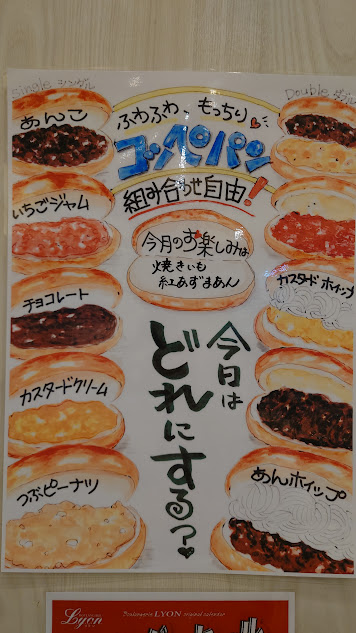 Single シングル
Double ダブル
ふわふわ、もっちり
コッペパン
組み合わせ自由!
あんこ
いちごジャム
チョコレート
カスタードクリーム
つぶピーナツ
今月のお楽しみは
焼きいも
紅あずまあん
カスタードホイップ
あんホイップ
今日は
どれにする?
Lyon
Boulangerie LYON original calendar